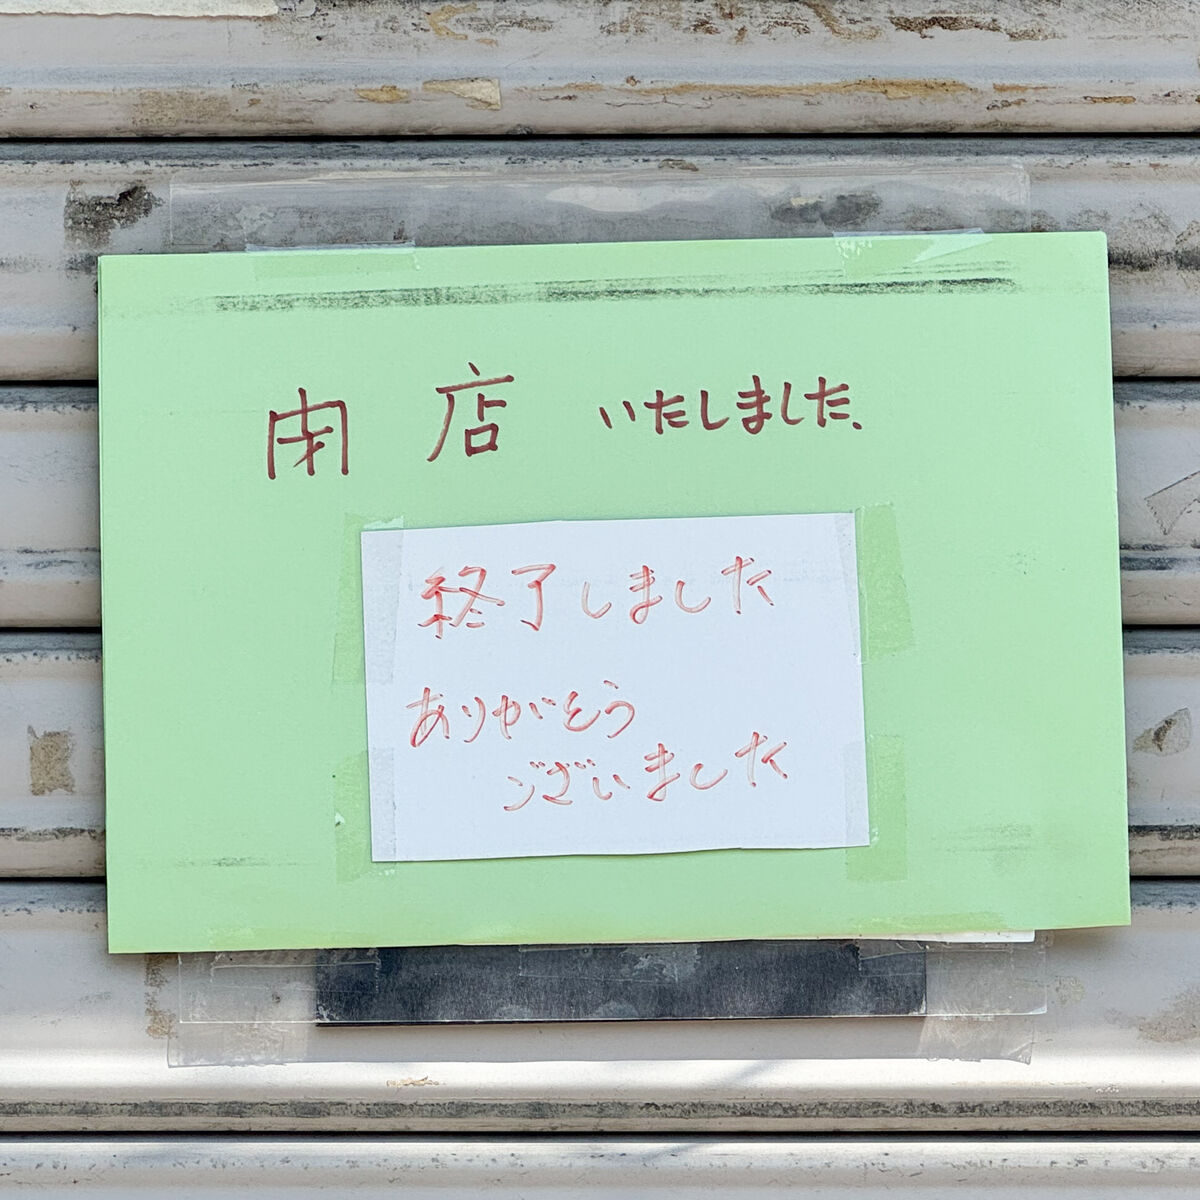 閉店いたしました.
終了しました
ありがとう
ございました